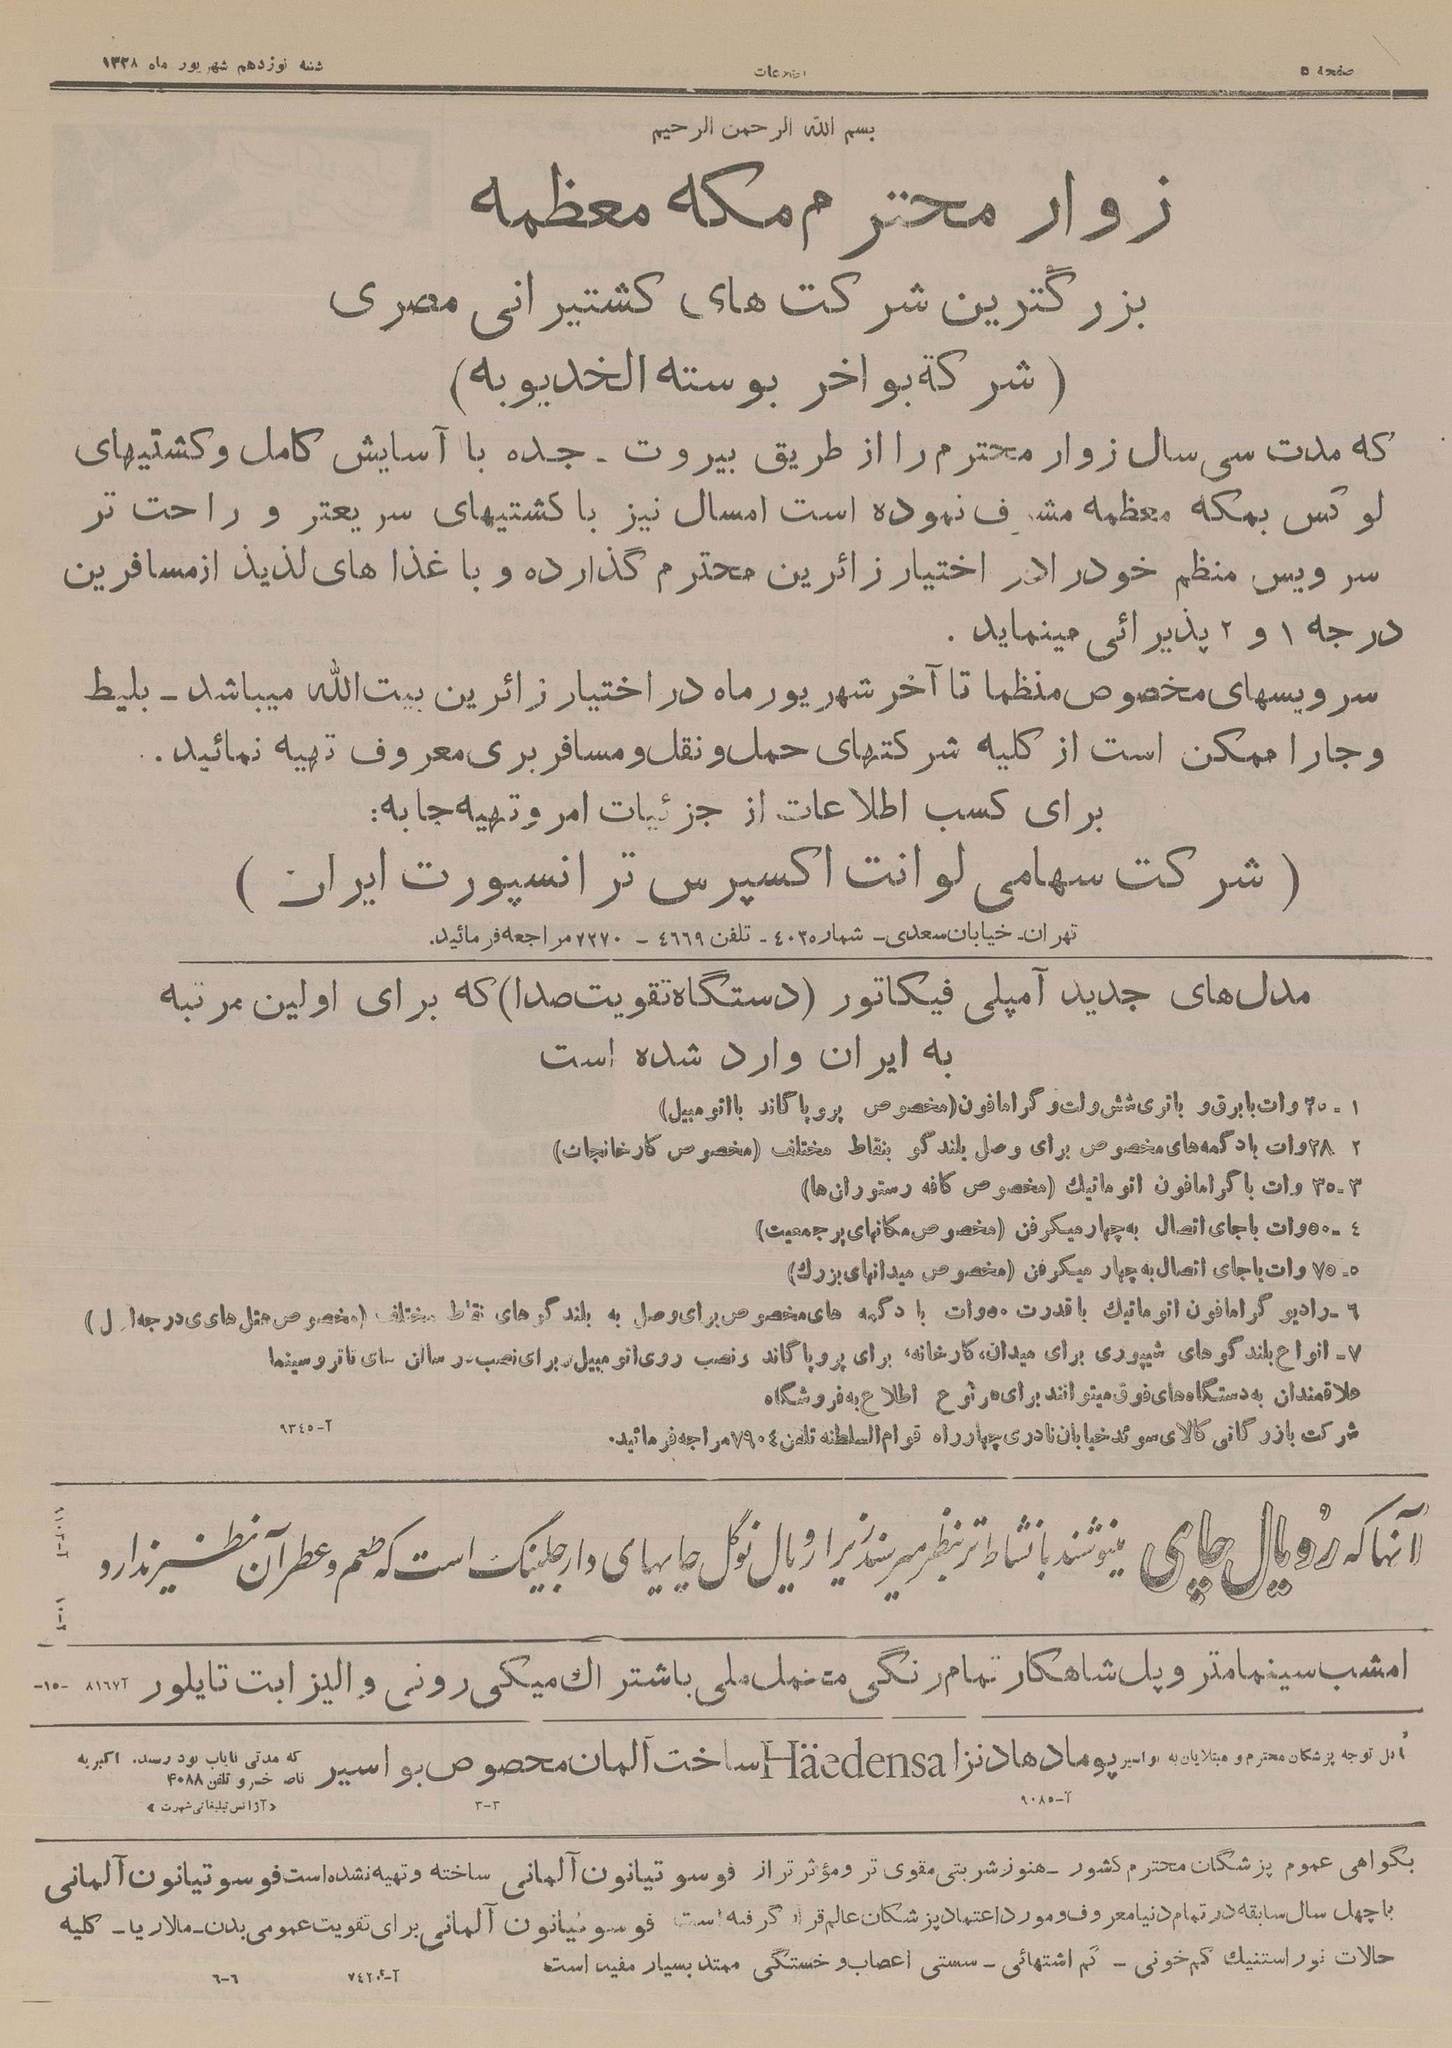 صفحه ۵
اطلاعات
شنبه نوزدهم شهریور ماه ۱۳۲۸
بسم الله الرحمن الرحیم
زوار محترم مکه معظمه
بزرگترین شرکت های کشتیرانی مصری
(شرکة بواخر بوسته الخدیویه)
که مدت سی سال زوار محترم را از طریق بیروت ـ جده با آسایش کامل و کشتیهای
لوکس بمکه معظمه مشرف نموده است امسال نیز با کشتیهای سریعتر و راحت تر
سرویس منظم خود را در اختیار زائرین محترم گذارده و با غذا های لذیذ از مسافرین
درجه ۱ و ۲ پذیرائی مینماید .
سرویسهای مخصوص منظما تا آخر شهریور ماه در اختیار زائرین بیت الله میباشد ـ بلیط
و جا را ممکن است از کلیه شرکتهای حمل و نقل و مسافر بری معروف تهیه نمائید .
برای کسب اطلاعات از جزئیات امر و تهیه جا به:
( شرکت سهامی لوانت اکسپرس ترانسپورت ایران )
تهران ـ خیابان سعدی ـ شماره ۴۰۲ ـ تلفن ۴۶۶۹ ـ ۷۲۷۰ مراجعه فرمائید.
مدل های جدید آمپلی فیکاتور (دستگاه تقویت صدا) که برای اولین مرتبه
به ایران وارد شده است
۱ ـ ۲۰ وات با برق و باتری شش ولت و گرامافون (مخصوص پروپاگاند با اتومبیل)
۲ ۲۸ وات با دگمه های مخصوص برای وصل بلندگو بنقاط مختلف (مخصوص کارخانجات)
۳ ـ ۳۵ وات با گرامافون اتوماتیك (مخصوص کافه رستوران ها)
٤ ـ ۵۰ وات با جای اتصال به چهار میکرفن (مخصوص مکانهای پر جمعیت)
۵ ـ ۷۵ وات با جای اتصال به چهار میکرفن (مخصوص میدانهای بزرك)
٦ ـ رادیو گرامافون اتوماتیك با قدرت ۵۰ وات با دگمه های مخصوص برای وصل به بلندگوهای نقاط مختلف (مخصوص هتل های درجه اول)
۷ ـ انواع بلندگوهای شیپوری برای میدان، کارخانه، برای پروپاگاند و نصب روی اتومبیل و برای نصب در سالن های تاتر و سینما
علاقمندان به دستگاه های فوق میتوانند برای هر نوع اطلاع به فروشگاه
شرکت بازرگانی کالای سوئد خیابان نادری چهار راه قوام السلطنه تلفن ۷۹۰٤ مراجعه فرمائید.
آ-۹۳٤۵
آنها که رُویال چای مینوشند با نشاط تر بنظر میرسند زیرا رویال نوگل چایهای دارجلینگ است که طعم و عطر آن نظیر ندارد
امشب سینما متروپل شاهکار تمام رنگی مخمل ملی با شتراك میکی رونی و الیزابت تایلور
آ ۸۱٦۷ -۱۵-
قابل توجه پزشکان محترم و مبتلایان به بواسیر پوماد هادنزا Häedensa ساخت آلمان مخصوص بواسیر که مدتی نایاب بود رسید. اکبریه
ناصر خسرو تلفن ۴۰۸۸
آ-۹۰۸۵
۳-۳
«آژانس تبلیغاتی شهرت»
بگواهی عموم پزشگان محترم کشور ـ هنوز شربتی مقوی تر و مؤثر تر از فوسوتیانون آلمانی ساخته و تهیه نشده است فوسوتیانون آلمانی
با چهل سال سابقه در تمام دنیا معروف و مورد اعتماد پزشکان عالم قرار گرفته است فوسوتیانون آلمانی برای تقویت عمومی بدن ـ مالاریا ـ کلیه
حالات نوراستنیك کم خونی ـ کم اشتهائی ـ سستی اعصاب و خستگی ممتد بسیار مفید است
٦-٦